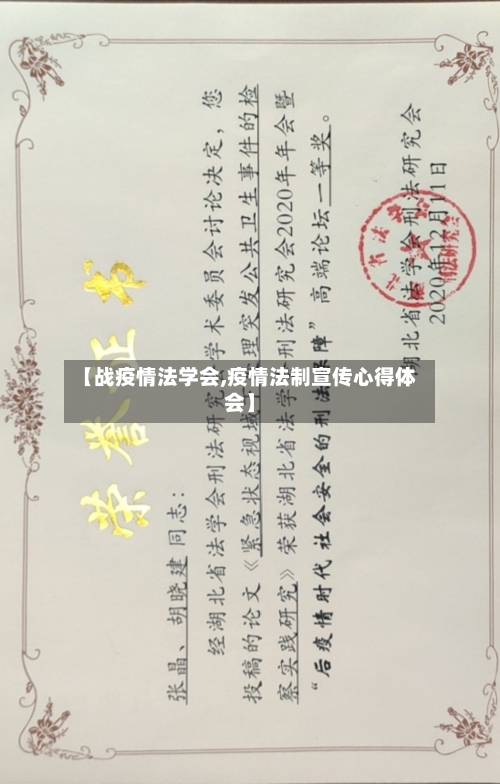 荣誉证书
张晶、胡晓建同志：
经湖北省法学会刑法研究 学术委员会讨论决定，您
投稿的论文《紧急状态视域 理突发公共卫生事件的检
察实践研究》荣获湖北省法学 刑法研究会2020年年会暨
“后疫情时代社会安全的刑法 障”高端论坛一等奖。
湖北省法学会刑法研究会
2020年12月11日
【战疫情法学会,疫情法制宣传心得体
会】